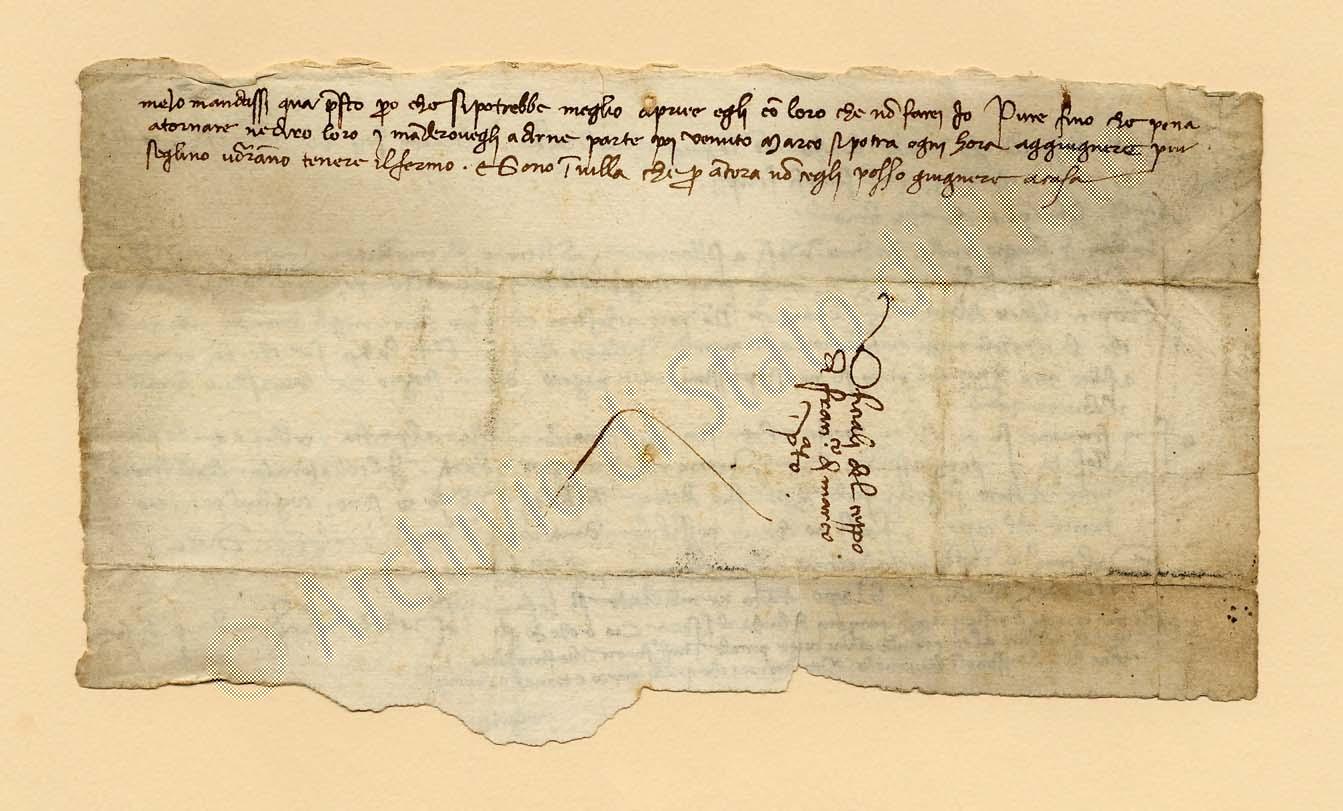 me lo mandassi qua p̃sto però che si potrebbe meglio aprire egli cõ loro che nõ farei Io Pure fino che pena
a tornare vedrò loro i manderovegli a dirne parte poi venuto Marco si potrà ogni hora aggiugnere più
se gliono vorãno tenere il fermo. E sono ĩ villa che p ãcora nõ cegli posso giugnere a casa
Oficiali del ceppo
di franco di marco
a
pto
© Archivio di Stato di Prato